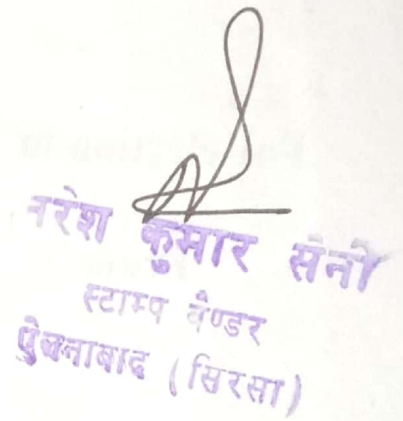 नरेश कुमार सैनी
स्टाम्प वैण्डर
ऐलनाबाद (सिरसा)